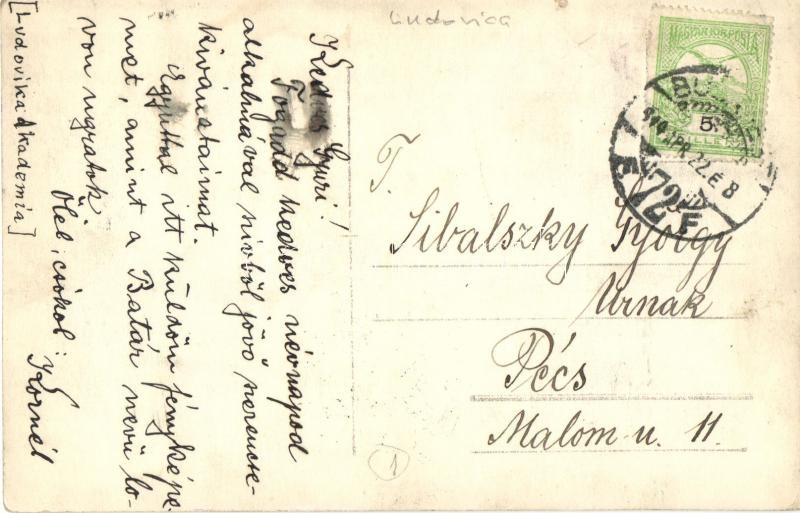 Ludovica
[Ludovika Akademia]
Kedves Gyuri!
Fogadd kedves névnapod
alkalmával szivből jövő szerencse-
kivánataimat.
Egyuttal itt küldöm fényképe-
met, amint a Batár nevü lo-
von ugratok
Ölel, csókol: Kornél
T.
Sibalszky György
Urnak
Pécs
Malom-u. 11.
MAGYAR KIR. POSTA
5
FILLÉR
BU
914 APR. 22. E 8
72
E F
1